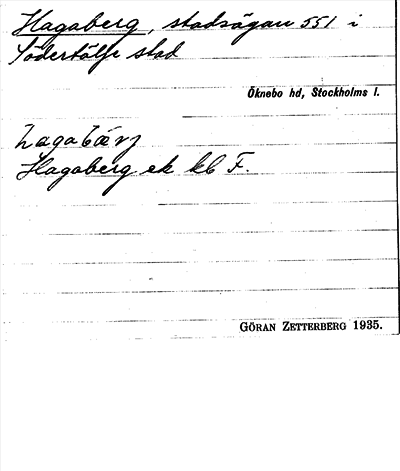 Hagaberg, stadsägan 551 i
Södertälje stad
Öknebo hd, Stockholms l.
hagabærj
Hagaberg ek kb F.
GÖRAN ZETTERBERG 1935.